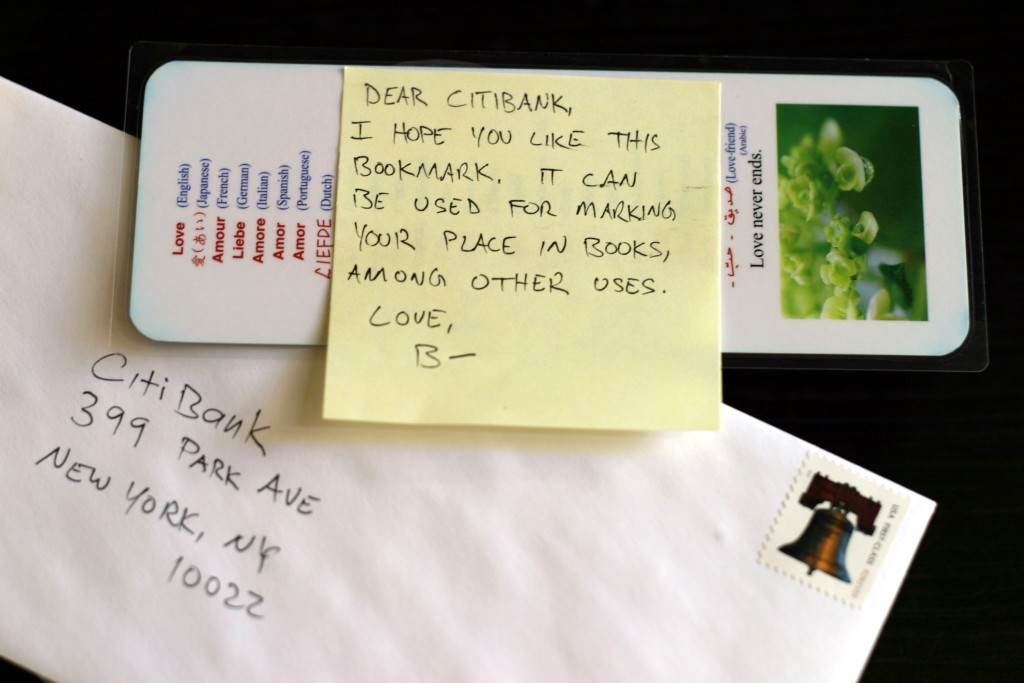 DEAR CITIBANK,
I HOPE YOU LIKE THIS
BOOKMARK. IT CAN
BE USED FOR MARKING
YOUR PLACE IN BOOKS,
AMONG OTHER USES.
LOVE,
B—
Love (English)
愛(あい) (Japanese)
Amour (French)
Liebe (German)
Amore (Italian)
Amor (Spanish)
Amor (Portuguese)
LIEFDE (Dutch)
صديق - حب - (Love-friend)
(Arabic)
Love never ends.
CitiBank
399 PARK AVE
NEW YORK, NY
10022
USA FIRST-CLASS FOREVER